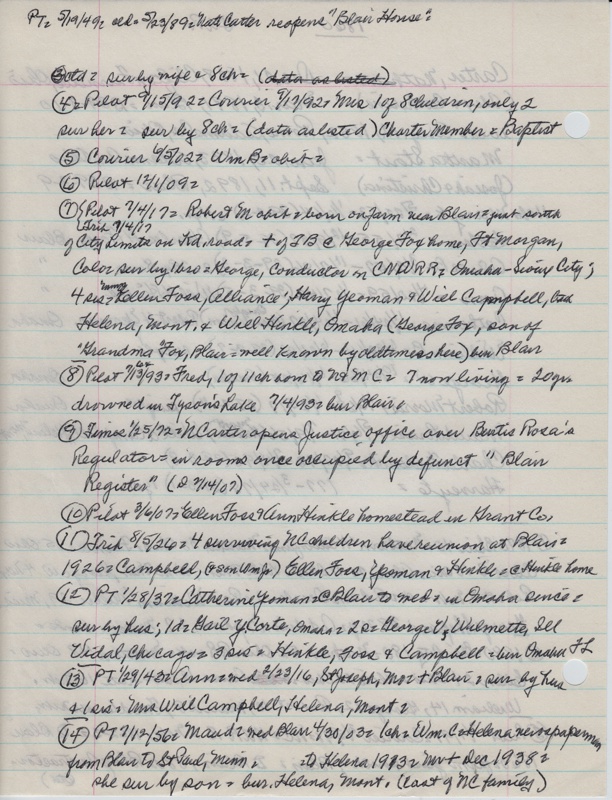 PT= 5/19/49= old= 5/23/89= Nate Carter reopens "Blair House"=
③ old= sur by wife & 8ch= (data as listed)
④= Pilot 9/15/92= Courier 9/17/92= Mrs 1 of 8 children, only 2
sur her= sur by 8ch= (data as listed) Charter Member= Baptist
⑤ Courier 6/5/02= Wm B= obit=
⑥ Pilot 12/1/09=
⑦ {Pilot 7/4/17= Robert M obit= born on farm near Blair= just south
Trib 7/4/17
of City Limits on Rd, road= + of TB @ George Fox home, Ft Morgan,
Colo= sur by 1 bro= George, Conductor on CNW RR= Omaha-Sioux City;
4 sis= Ellen Foss, Alliance; Harry Yeoman & Will Campbell, both
Helena, Mont. & Will Hinkle, Omaha (George Fox, son of
"Grandma" Fox, Blair= well known by oldtimers here) bur Blair
⑧ Pilot 7/93= Fred, 1 of 11ch born to N & M C= 7 now living= 20 yrs
drowned in Tyson's Lake 7/4/93= bur Blair.
⑨ Times 1/25/72= N Carter opens Justice office over Burtis Rosa's
Regulator= in rooms once occupied by defunct "Blair
Register" (D 7/14/07)
⑩ Pilot 3/6/07= Ellen Foss & Ann Hinkle homestead in Grant Co,
⑪ Trib 8/5/26= 4 surviving NC children have reunion at Blair=
1926= Campbell, (& son Wm Jr) Ellen Foss, Yeoman & Hinkle= @ Hinkle home
⑫ PT 1/28/37= Catherine Yoman= @ Blair to med= in Omaha since=
sur by hus; 1d= Gail Y. Corte, Omaha= 2s= George Y, Wilmette, Ill
Vidal, Chicago= 3 sis= Hinkle, Foss & Campbell= bur Omaha FL
⑬ PT 1/29/43= Ann= wed 2/23/16, St Joseph, Mo= + Blair= sur by hus
& 1 sis= Mrs Will Campbell, Helena, Mont=
⑭ PT 7/12/56= Maud= wed Blair 4/30/03= 1ch= Wm. C= Helena newspaperman
from Blair to St Paul, Minn= to Helena 1913= Mr + Dec 1938=
she sur by son= bur. Helena, Mont. (last of NC family)